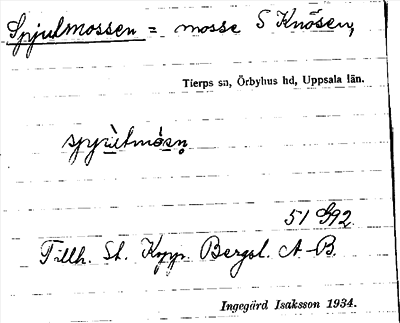 Spjulmossen = mosse S Knösen,
Tierps sn, Örbyhus hd, Uppsala län.
51 G92
Tillh. St. Kopp. Bergsl. A-B.
Ingegärd Isaksson 1934.